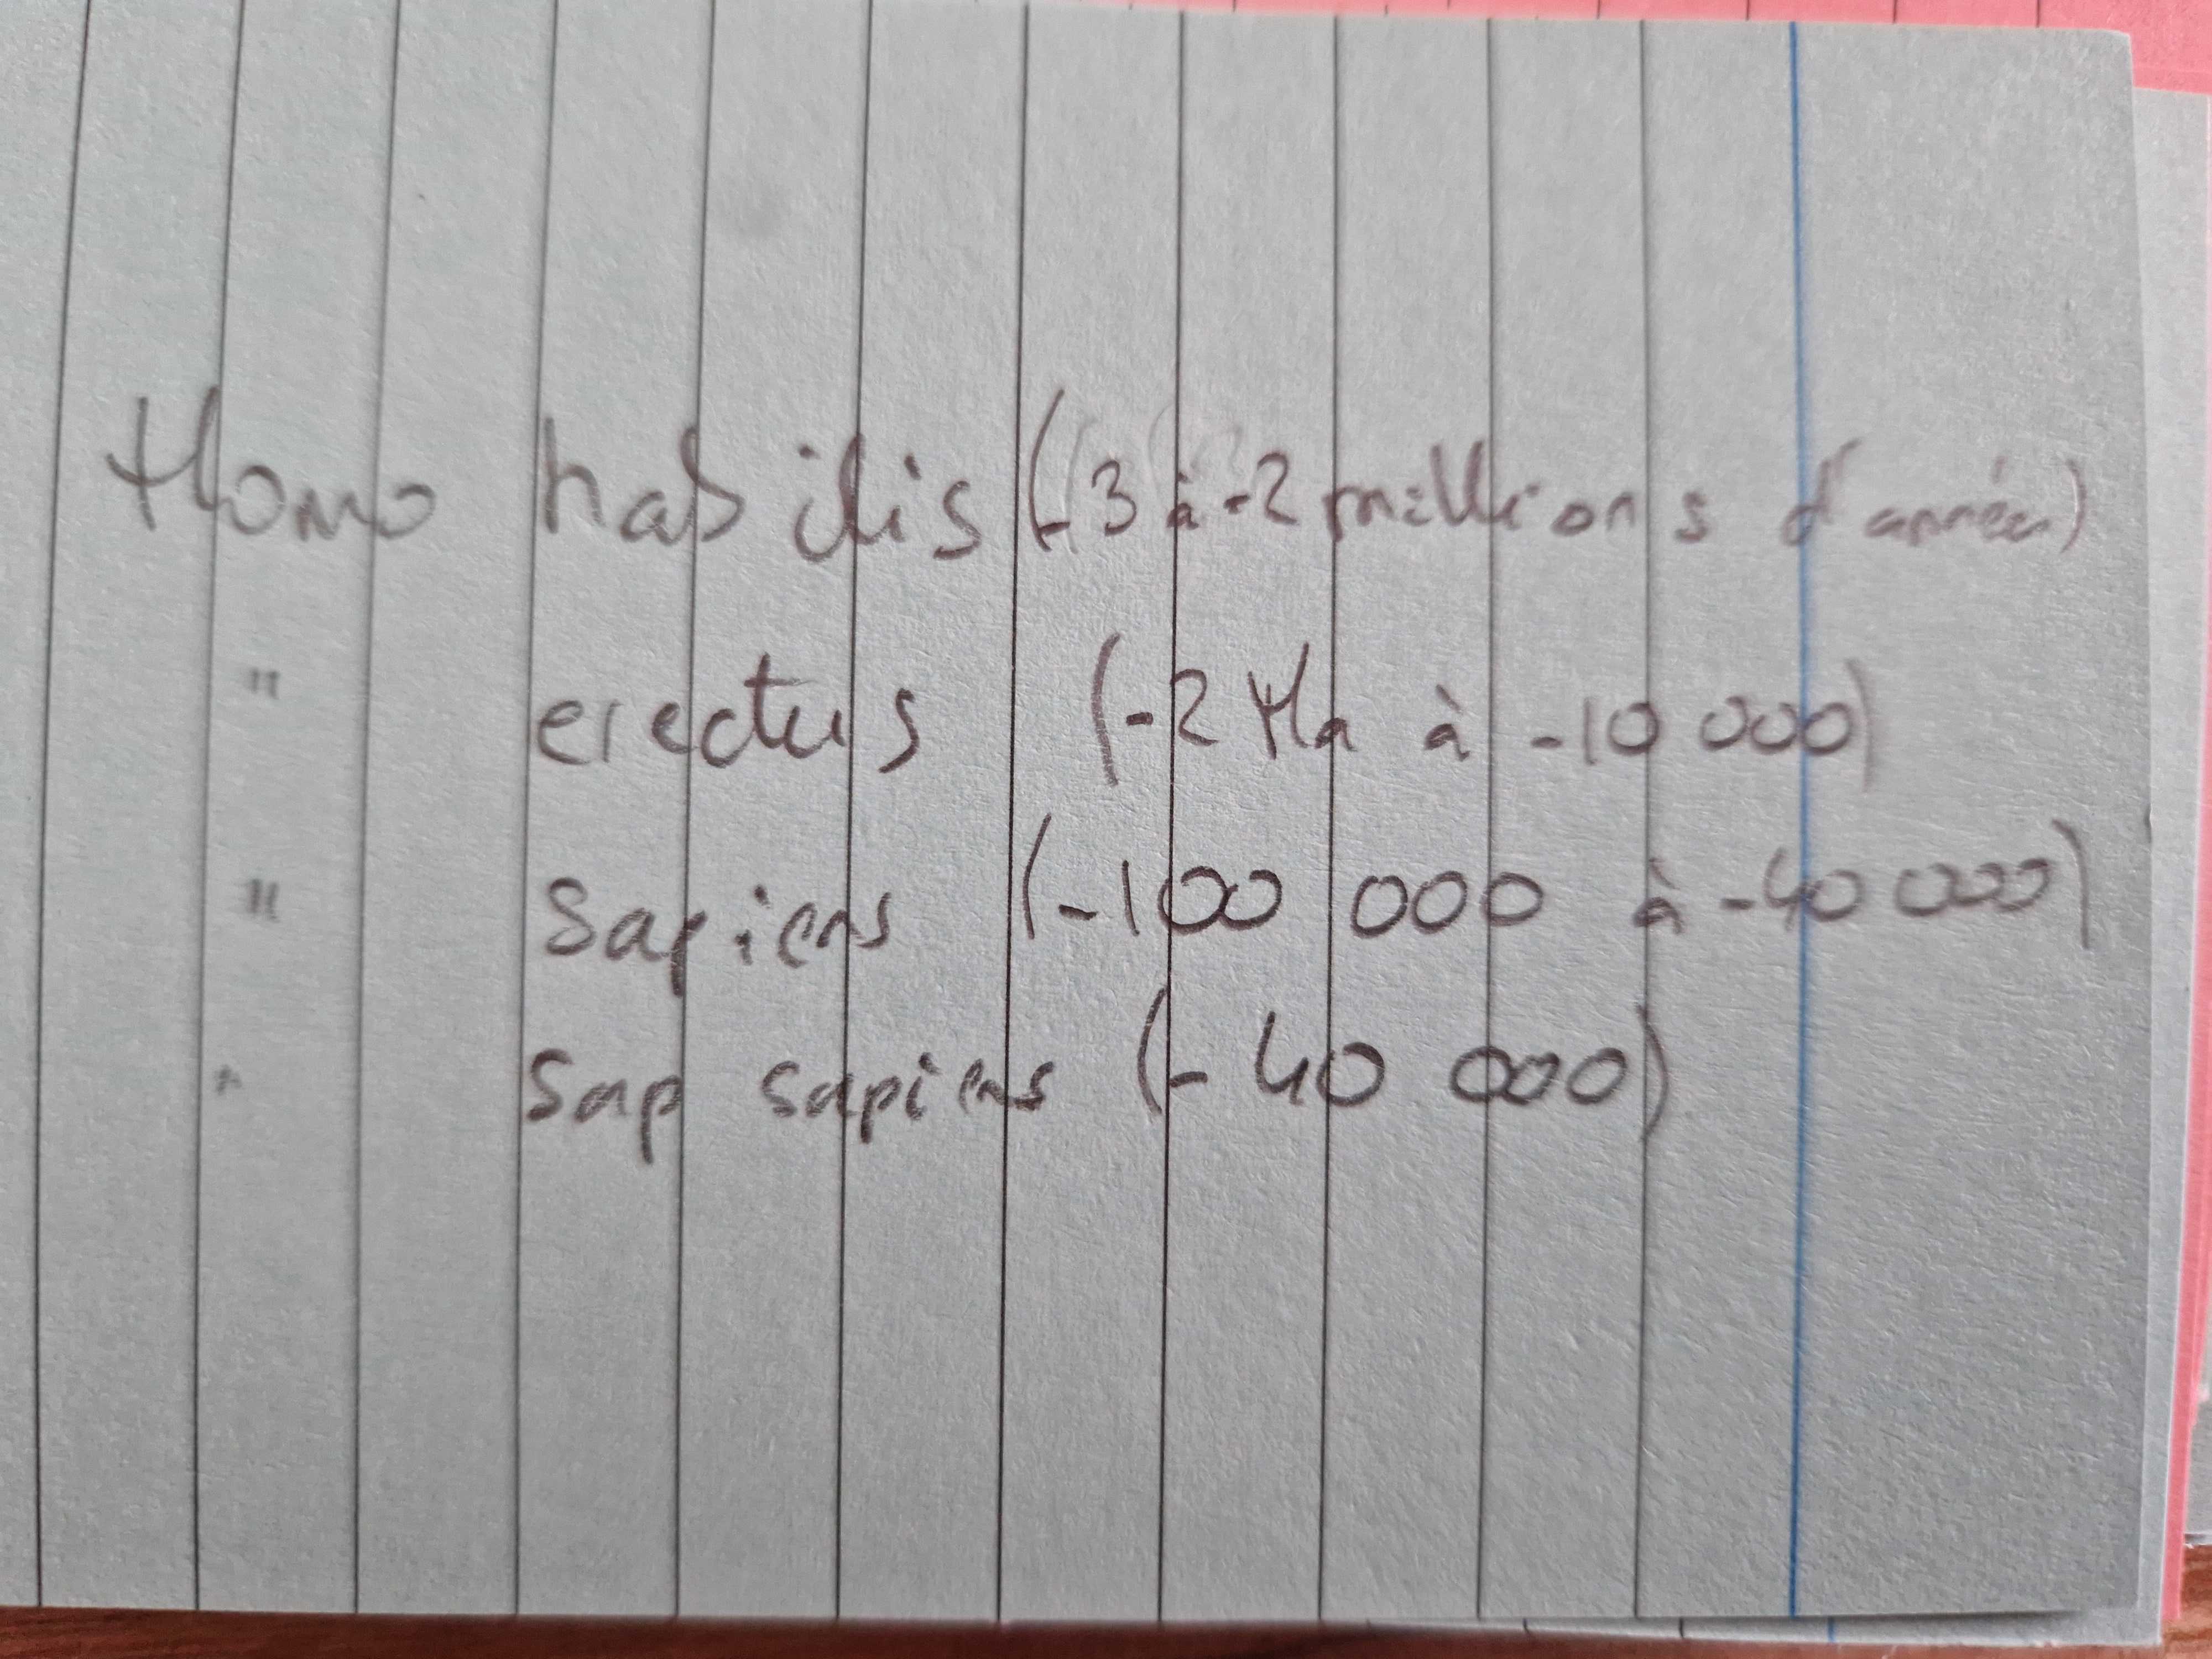 Homo habilis (-3 à -2 millions d'années)
" erectus (-2 Ma à -10 000)
" Sapiens (-100 000 à -40 000)
" Sap sapiens (-40 000)